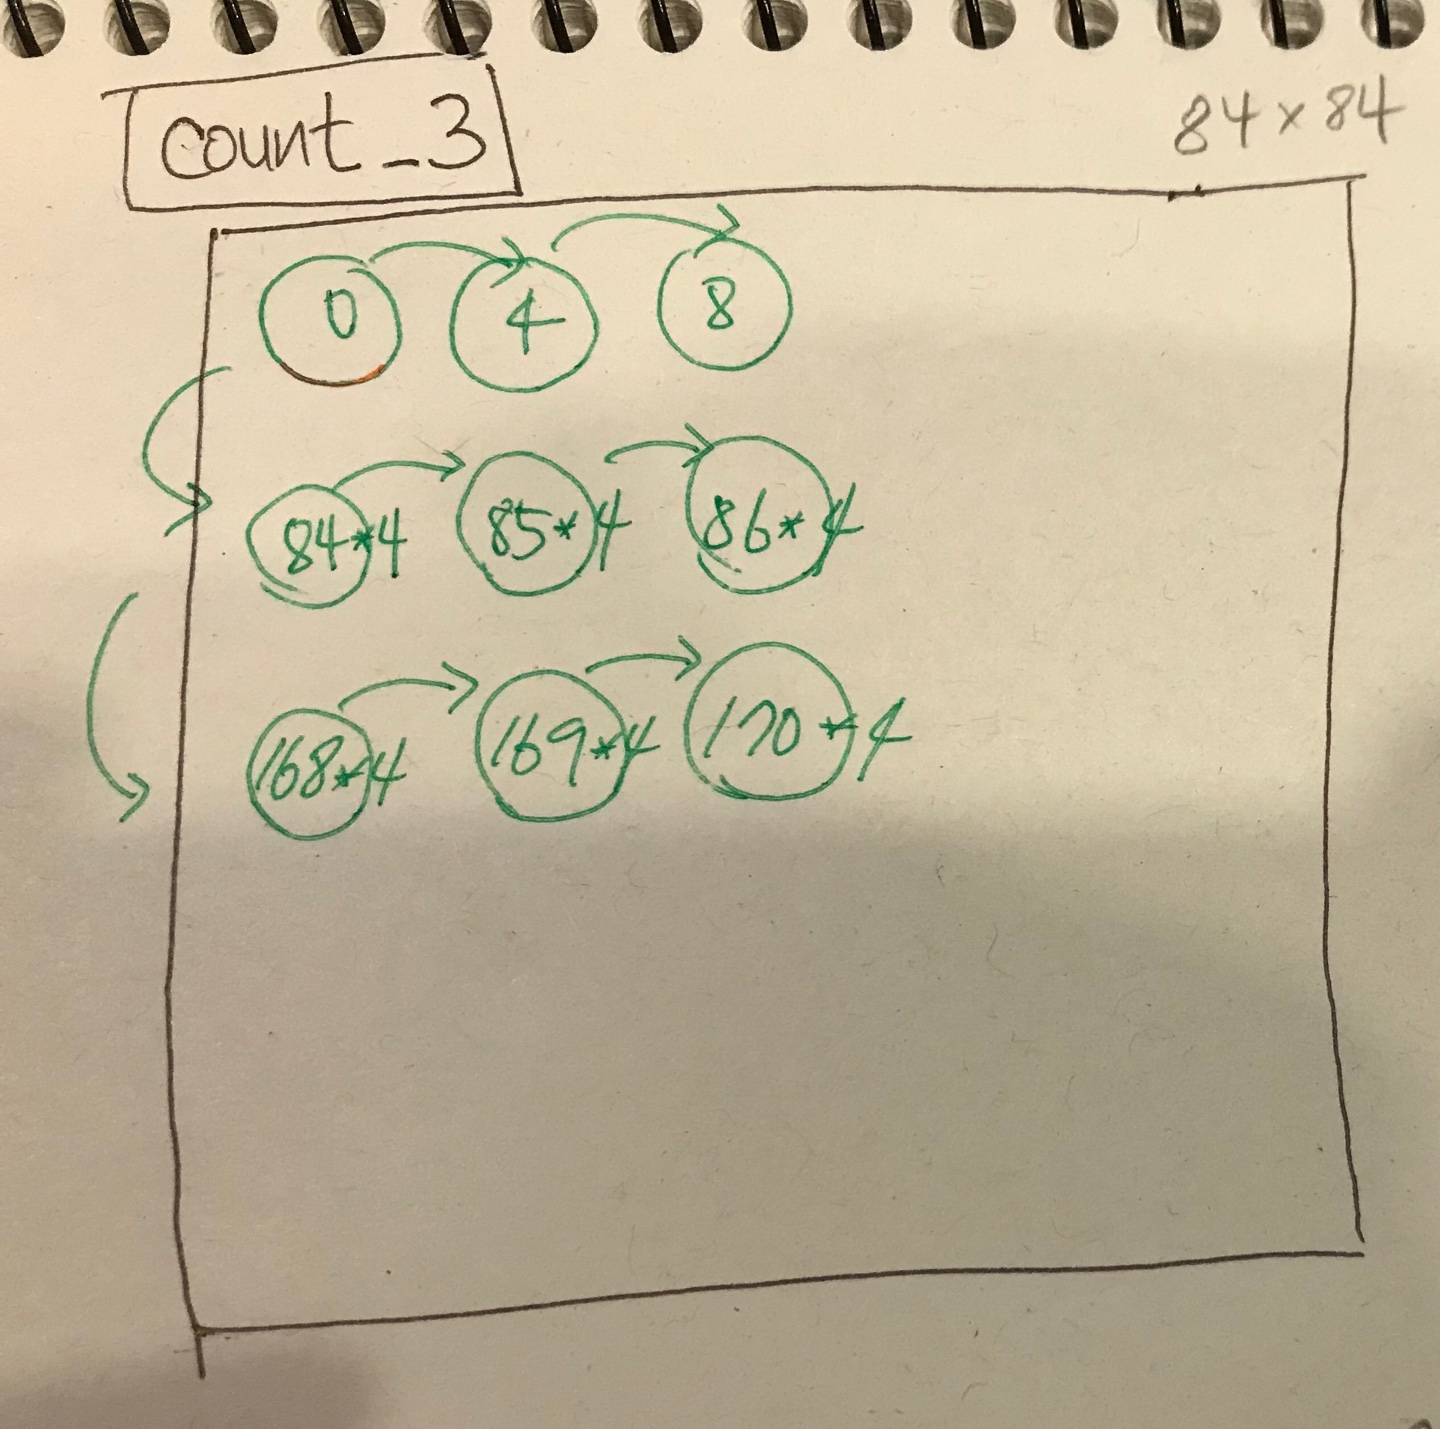 count_3
84 x 84
0 4 8
84*4 85*4 86*4
168*4 169*4 170*4